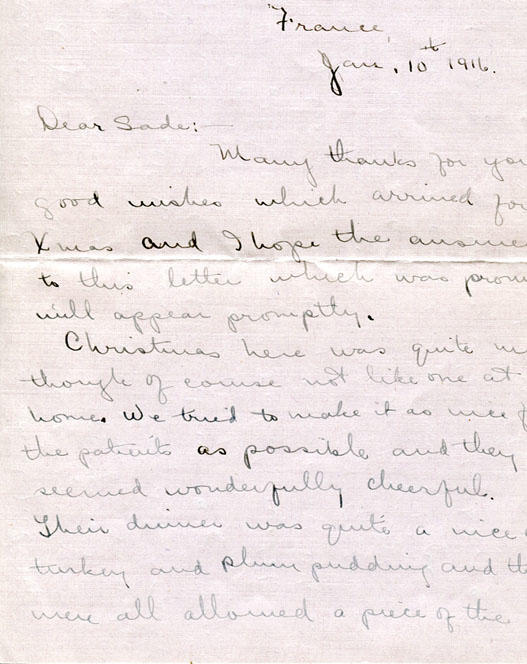 France,
Jan. 10th 1916.
Dear Sade:-
Many thanks for you
good wishes which arrived for
Xmas and I hope the answe
to this letter which was prom
will appear promptly.
Christmas here was quite
though of course not like one at
home. We tried to make it as nice f
the patients as possible and they
seemed wonderfully cheerful.
Their dinner was quite a nice
turkey and plum pudding and th
were all allowed a piece of the